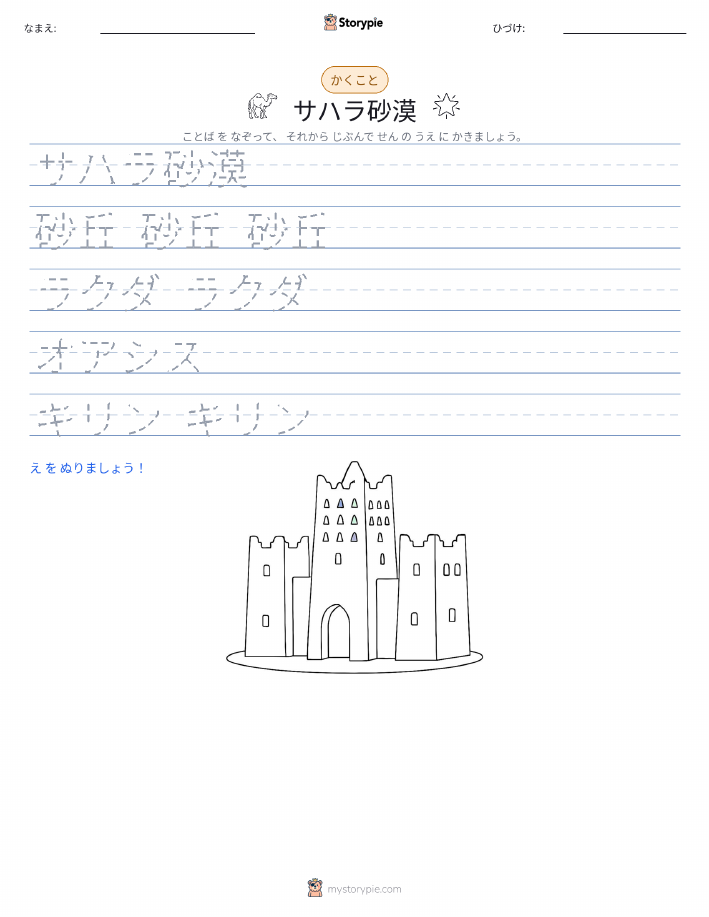 なまえ:
Storypie
ひづけ:
かくこと
サハラ砂漠
ことば を なぞって、 それから じぶんで せん の うえ に かきましょう。
サハラ砂漠
砂丘 砂丘 砂丘
ラクダ ラクダ
オアシス
キリン キリン
え を ぬりましょう！
mystorypie.com